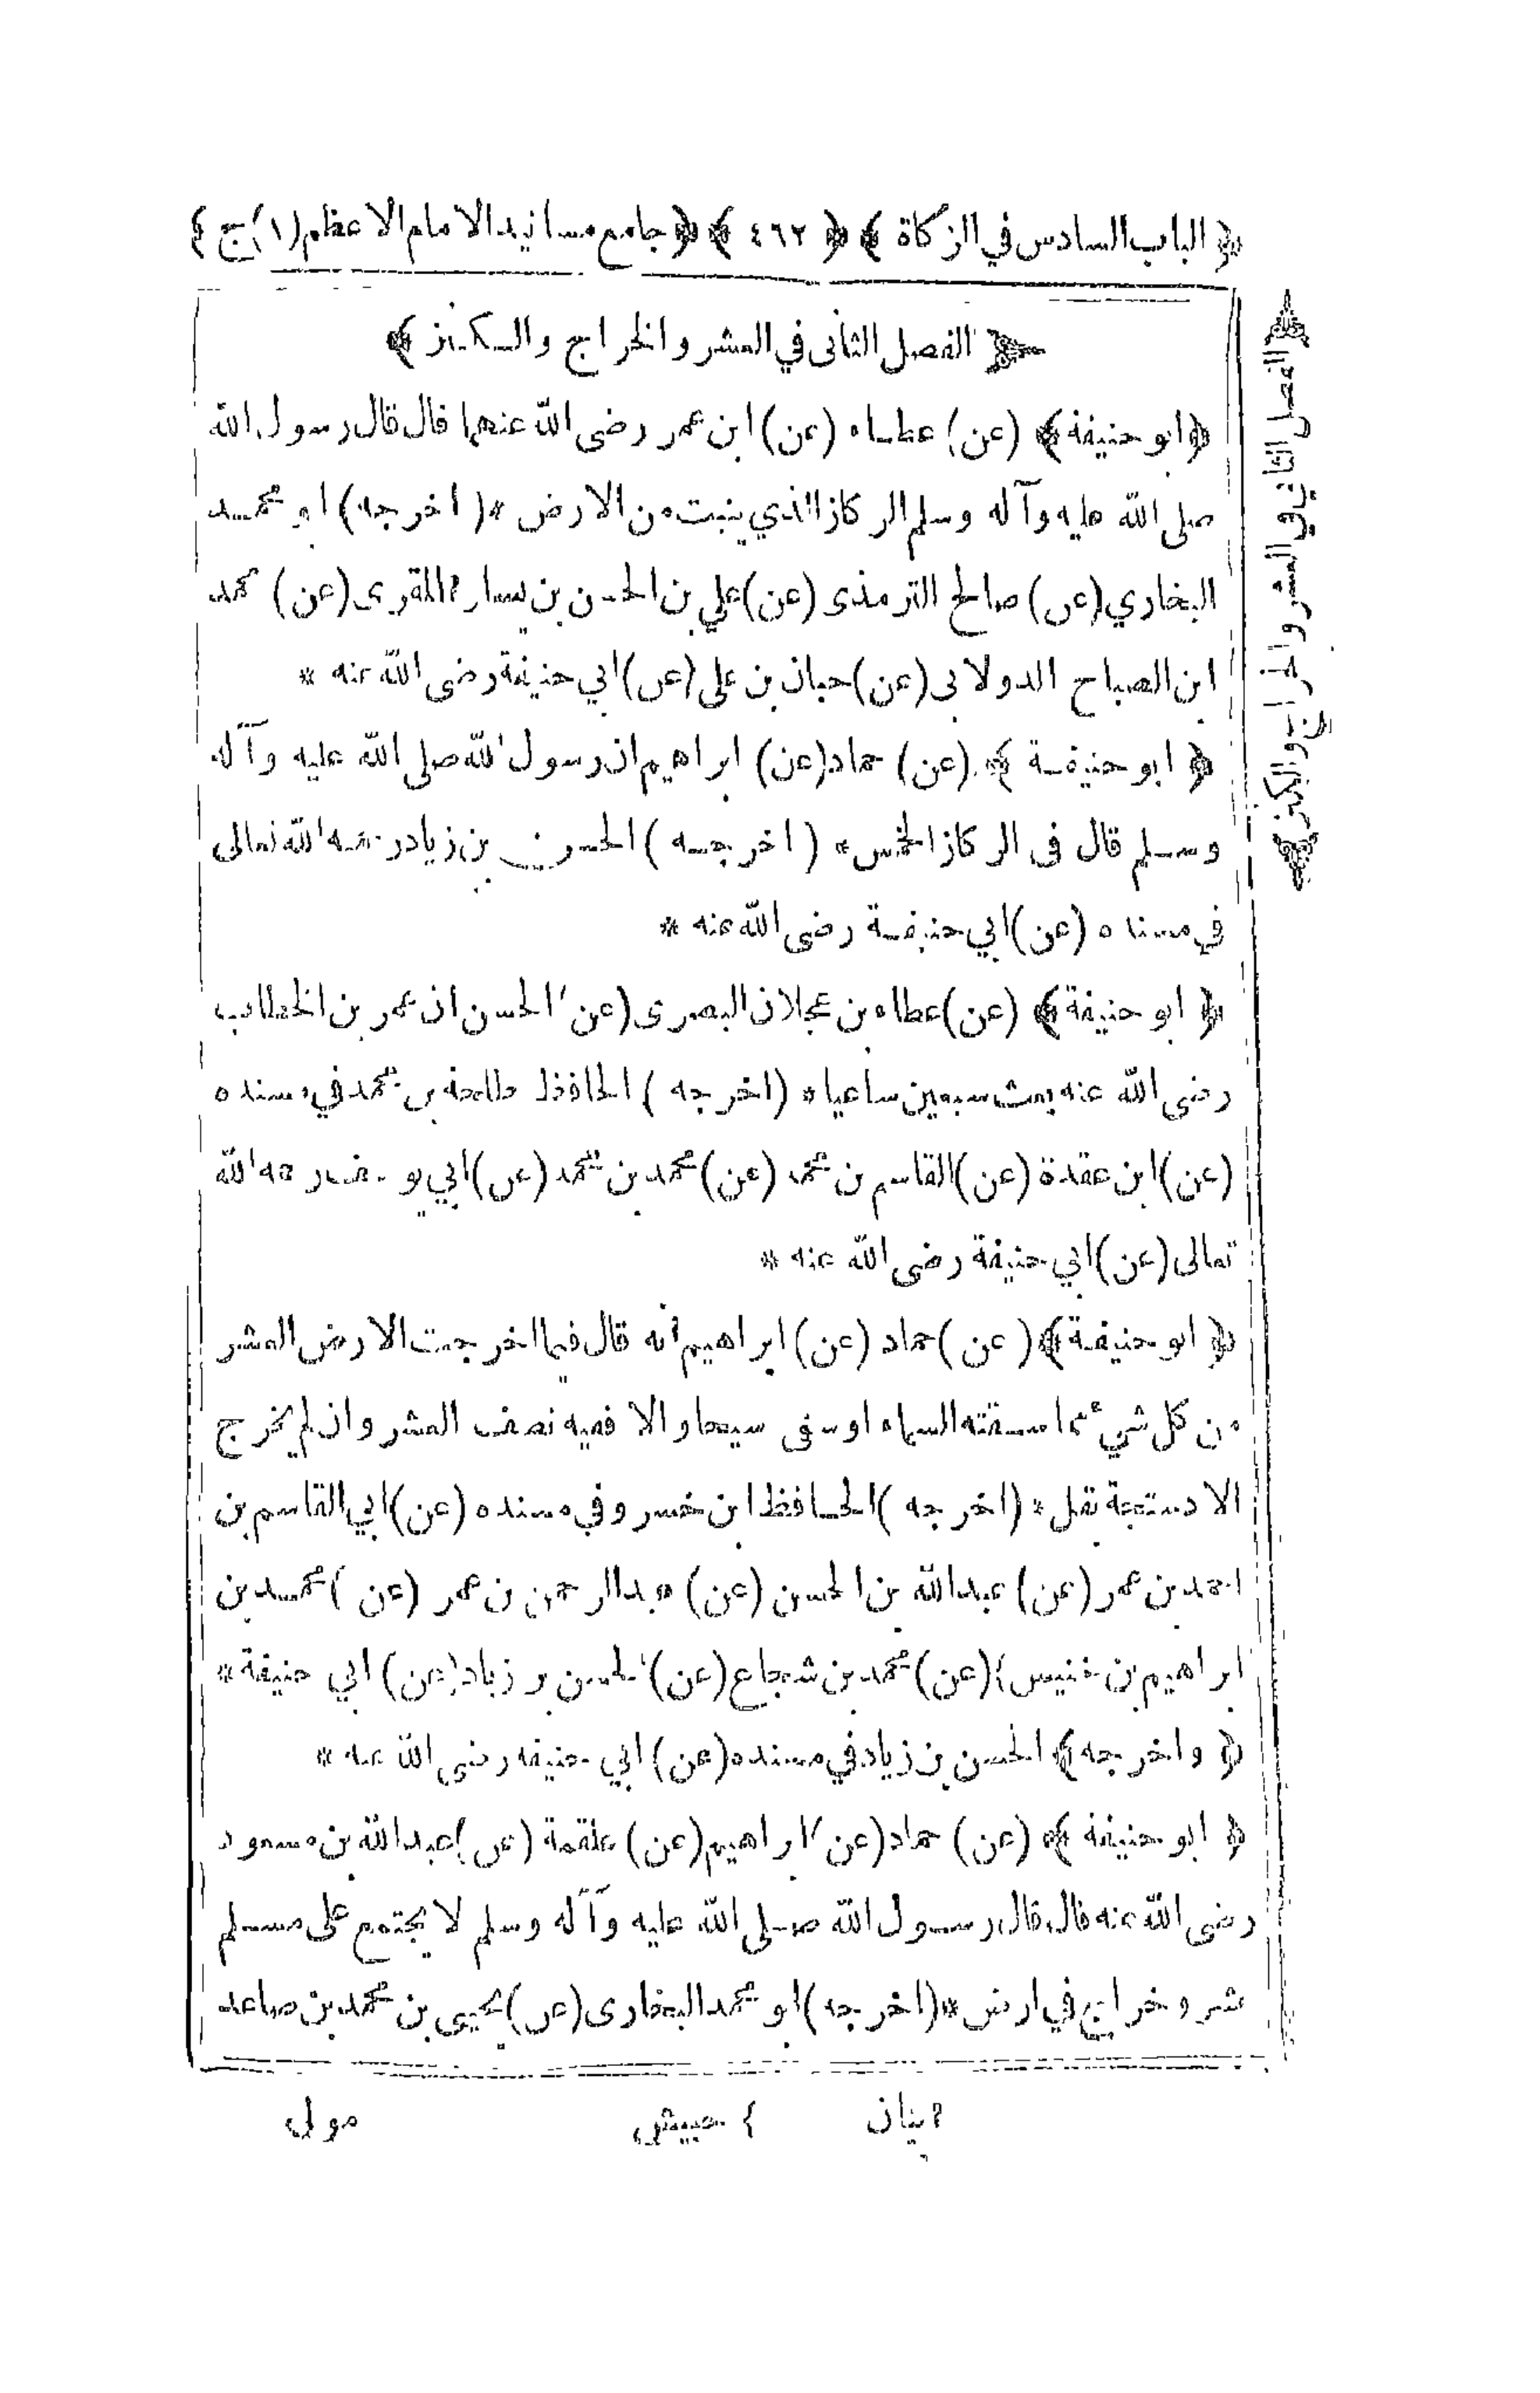 ﴿ الباب السادس في الزكاة ﴾ ﴿ ٤٦٢ ﴾ ﴿ جامع مسانيد الامام الاعظم (١) ج ﴾
﴿ الفصل الثانى في العشر والخراج والكنز ﴾
﴿ ابو حنيفة ﴾ (عن) عطاء (عن) ابن عمر رضى الله عنهما قال قال رسول الله
صلى الله عليه وآله وسلم الركاز الذي ينبت من الارض * (اخرجه) ابو محمد
البخاري (عن) صالح الترمذى (عن) علي بن الحسن بن يسار ٢ المقرى (عن) محمد
ابن الصباح الدولابى (عن) حبان بن على (عن) ابي حنيفة رضى الله عنه *
﴿ ابو حنيفة ﴾ (عن) حماد (عن) ابراهيم ان رسول الله صلى الله عليه وآله
وسلم قال فى الركاز الخمس * (اخرجه) الحسن بن زياد رحمه الله تعالى
في مسنده (عن) ابي حنيفة رضى الله عنه *
﴿ ابو حنيفة ﴾ (عن) عطاء بن عجلان البصرى (عن) الحسن ان عمر بن الخطاب
رضى الله عنه بعث سبعين ساعيا * (اخرجه) الحافظ طلحة بن محمد في مسنده
(عن) ابن عقدة (عن) القاسم بن محمد (عن) محمد بن محمد (عن) ابي يوسف رحمه الله
تعالى (عن) ابي حنيفة رضى الله عنه *
﴿ ابو حنيفة ﴾ (عن) حماد (عن) ابراهيم انه قال فيما اخرجت الارض العشر
من كل شيء مما سقته السماء اوسقى سيحا والا ففيه نصف العشر وان لم يخرج
الا دستجة بقل * (اخرجه) الحافظ ابن خسرو في مسنده (عن) ابي القاسم بن
احمد بن عمر (عن) عبدالله بن الحسن (عن) عبدالرحمن بن عمر (عن) محمد بن
ابراهيم بن خنيس ٤ (عن) محمد بن شجاع (عن) الحسن بن زياد (عن) ابي حنيفة *
﴿ واخرجه ﴾ الحسن بن زياد في مسنده (عن) ابي حنيفه رضى الله عنه *
﴿ ابو حنيفة ﴾ (عن) حماد (عن) ابراهيم (عن) علقمة (عن) عبدالله بن مسعود
رضى الله عنه قال قال رسول الله صلى الله عليه وآله وسلم لا يجتمع على مسلم
عشر وخراج في ارض * (اخرجه) ابو محمد البخارى (عن) يحيى بن محمد بن صاعد
٢ بنان ٤ حبيش مولى
﴿ الفصل الثاني في العشر والخراج والكنز ﴾